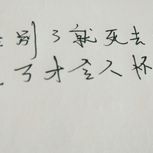 别了就死去
了才会入怀